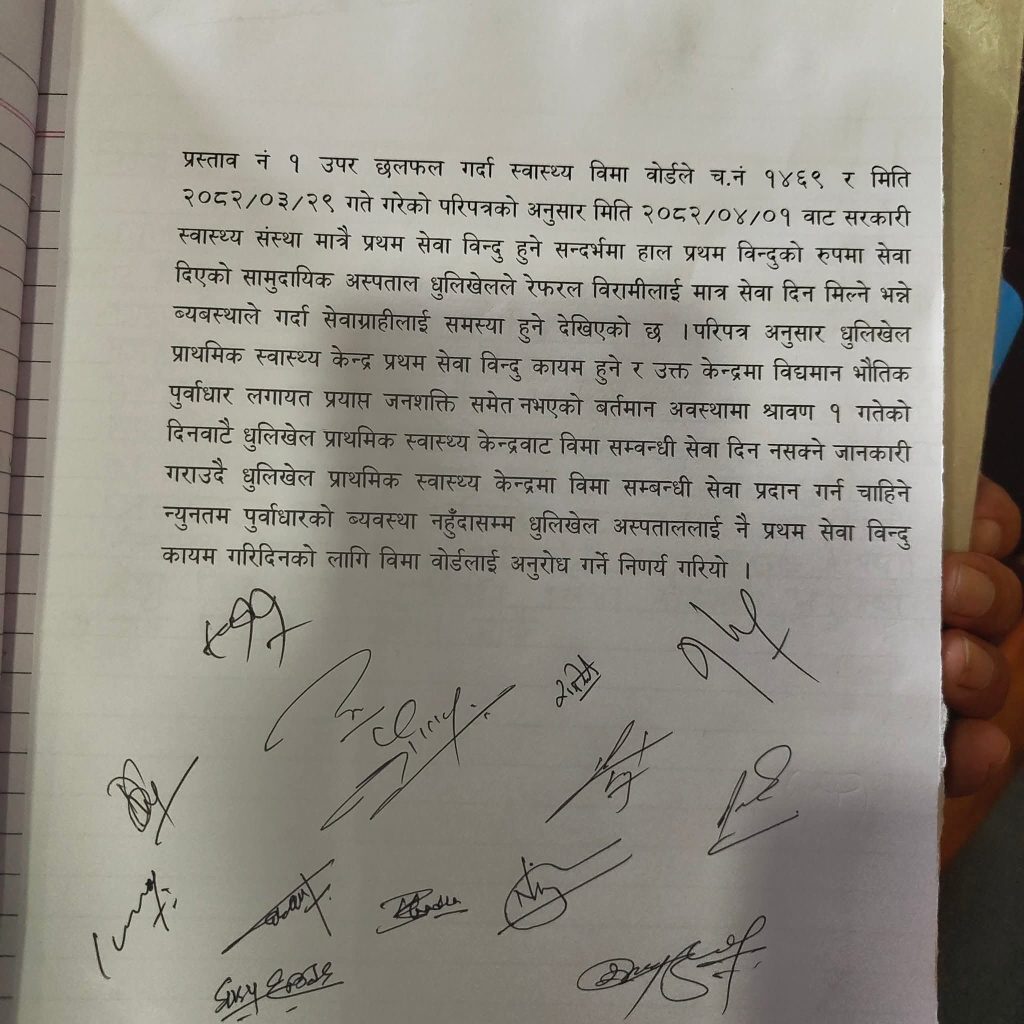 प्रस्ताव नं १ उपर छलफल गर्दा स्वास्थ्य विमा वोर्डले च.नं १४६९ र मिति
२०८२/०३/२९ गते गरेको परिपत्रको अनुसार मिति २०८२/०४/०१ वाट सरकारी
स्वास्थ्य संस्था मात्रै प्रथम सेवा विन्दु हुने सन्दर्भमा हाल प्रथम विन्दुको रुपमा सेवा
दिएको सामुदायिक अस्पताल धुलिखेलले रेफरल विरामीलाई मात्र सेवा दिन मिल्ने भन्ने
ब्यबस्थाले गर्दा सेवाग्राहीलाई समस्या हुने देखिएको छ ।परिपत्र अनुसार धुलिखेल
प्राथमिक स्वास्थ्य केन्द्र प्रथम सेवा विन्दु कायम हुने र उक्त केन्द्रमा विद्यमान भौतिक
पुर्वाधार लगायत प्रयाप्त जनशक्ति समेत नभएको बर्तमान अवस्थामा श्रावण १ गतेको
दिनवाटै धुलिखेल प्राथमिक स्वास्थ्य केन्द्रवाट विमा सम्वन्धी सेवा दिन नसक्ने जानकारी
गराउदै धुलिखेल प्राथमिक स्वास्थ्य केन्द्रमा विमा सम्बन्धी सेवा प्रदान गर्न चाहिने
न्युनतम पुर्वाधारको ब्यवस्था नहुँदासम्म धुलिखेल अस्पताललाई नै प्रथम सेवा विन्दु
कायम गरिदिनको लागि विमा वोर्डलाई अनुरोध गर्ने निणर्य गरियो ।